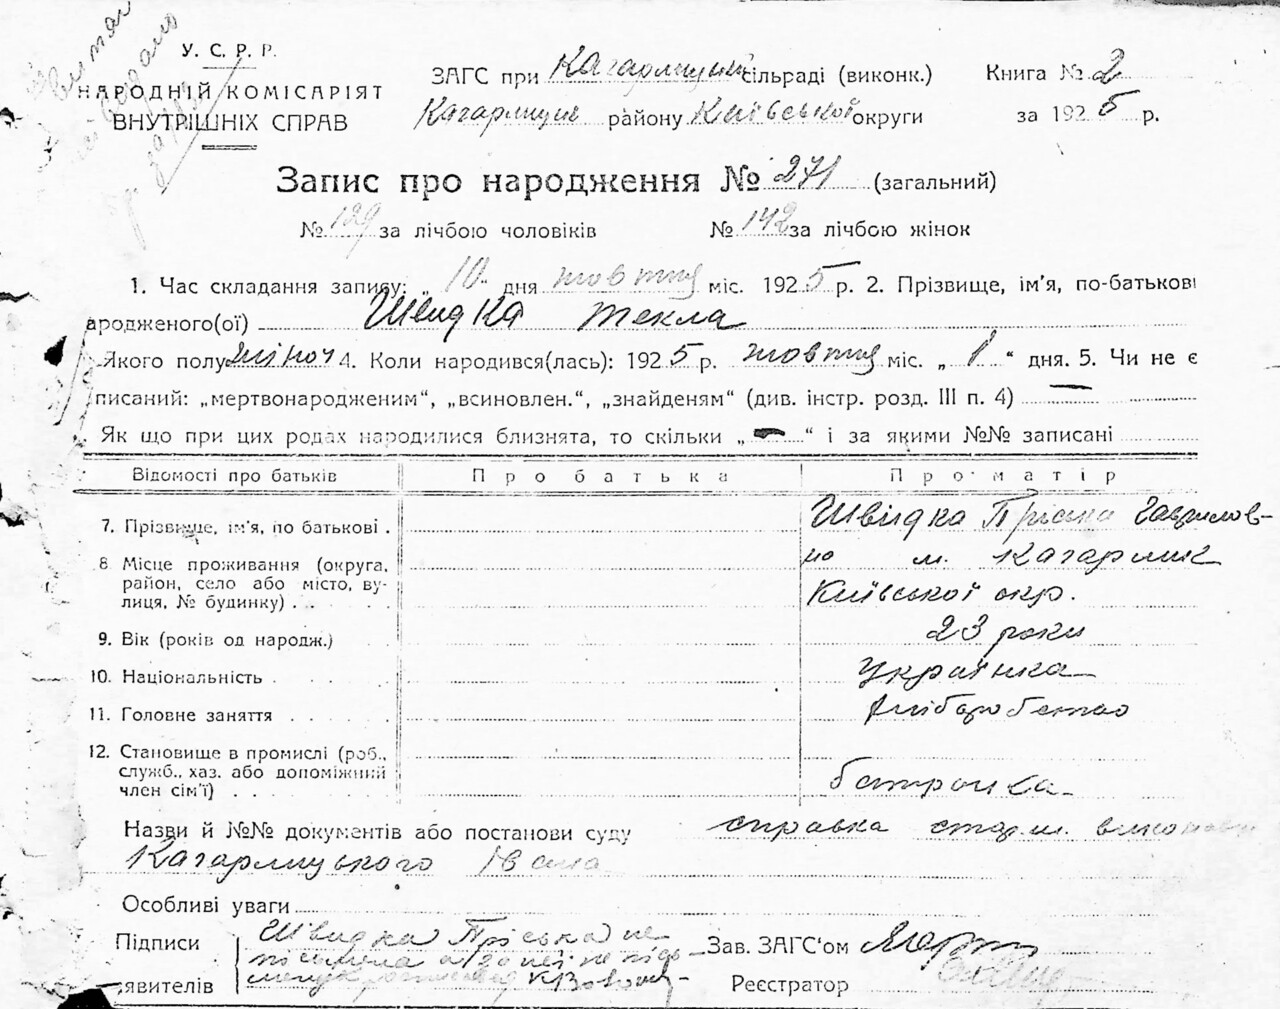 У. С. Р. Р.
НАРОДНІЙ КОМІСАРІЯТ
ВНУТРІШНІХ СПРАВ
ЗАГС при Кагарлицькій сільраді (виконк.) Книга № 2
Кагарлицьк району Київської округи за 1925 р.
Запис про народження № 271 (загальний)
№ 129 за лічбою чоловіків № 142 за лічбою жінок
1. Час складання запису: „ 10 " дня жовтня міс. 1925 р. 2. Прізвище, ім'я, по-батькові
ародженого(ої) Швидка Текла
Якого полу жіноч 4. Коли народився(лась): 1925 р. жовтня міс. „ 1 “ дня. 5. Чи не є
писаний: „мертвонародженим“, „всиновлен.“, „знайденям“ (див. інстр. розд. III п. 4) —
Як що при цих родах народилися близнята, то скільки „ — “ і за якими №№ записані
Відомості про батьків Про батька Про матір
7. Прізвище, ім'я, по батькові . Швидка Пріська Гаврилов-
8 Місце проживання (округа, район, село або місто, вулиця, № будинку) . . . . . на м. Кагарлик
Київської окр.
9. Вік (років од народж.) 23 роки
10. Національність . . . . Українка
11. Головне заняття . . . . хліборобство
12. Становище в промислі (роб., служб., хаз. або допоміжний член сім'ї) . . . . .
Назви й №№ документів або постанови суду справка
Кагарлицького Івана
Особливі уваги
Підписи Швидка Пріська не Зав. ЗАГС'ом
явителів Реєстратор